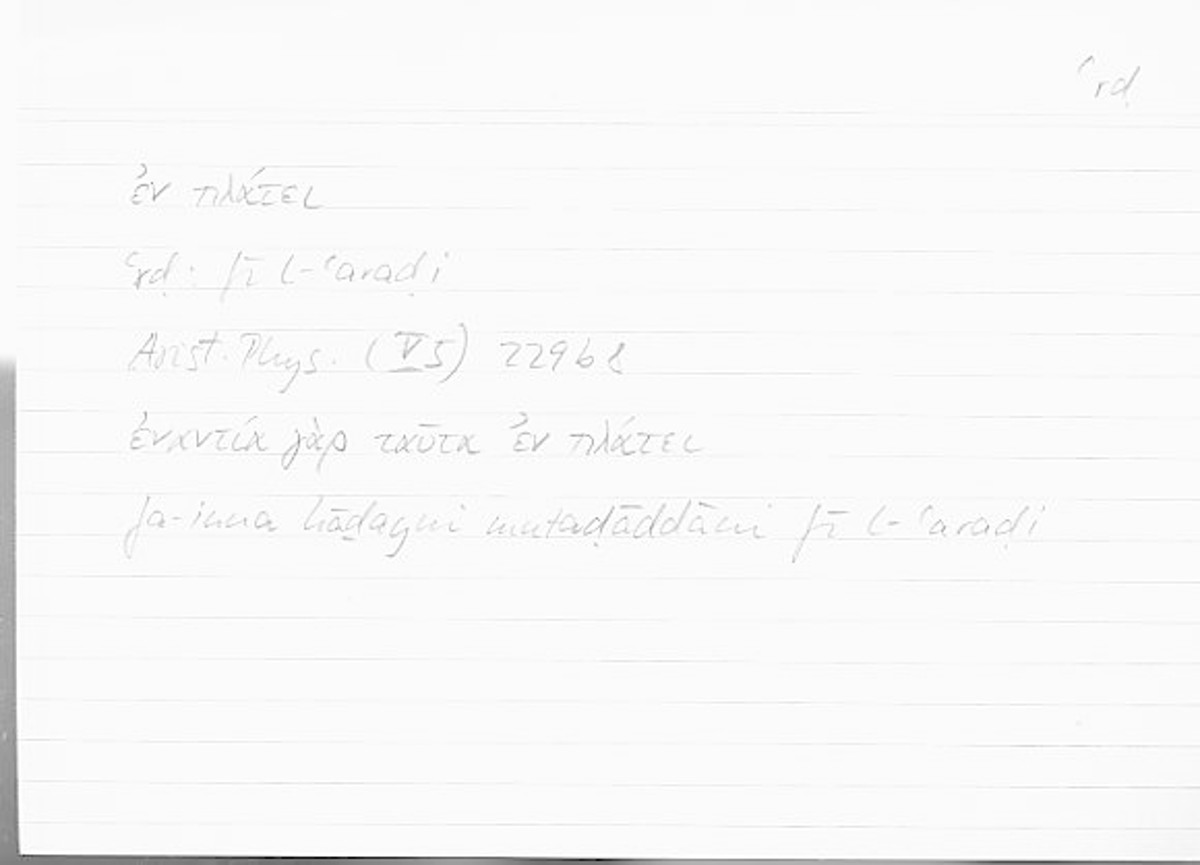 ʿrḍ
ἐν πλάτει
ʿrḍ: fī l-ʿaraḍi
Arist. Phys. (V5) 229b8
ἐναντία γὰρ ταῦτα ἐν πλάτει
fa-inna hāḏayni mutaḍāddāni fī l-ʿaraḍi